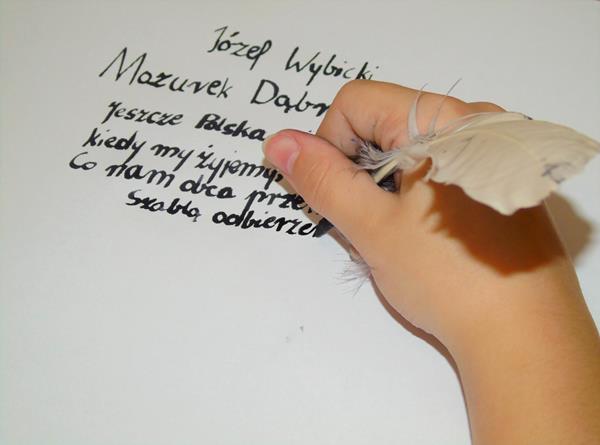 Józef Wybicki
Mazurek Dąbr
Jeszcze Polska
kiedy my żyjemy
Co nam obca prze
Szablą odbierze